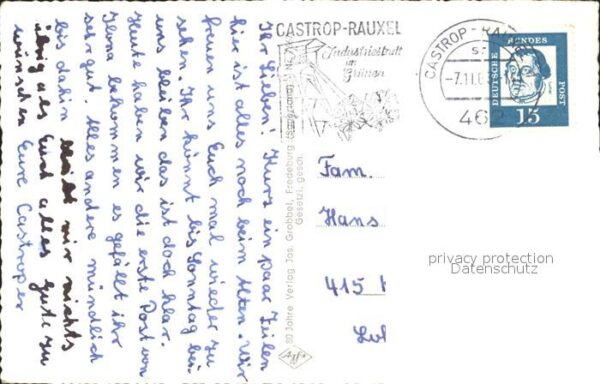 Ihr Lieben! Kurz ein paar Zeilen
hier ist alles noch beim Alten. Wir
freuen uns Euch mal wieder zu
sehen. Ihr könnt bis Sonntag bei
uns bleiben das ist doch klar.
Heute haben wir die erste Post von
Ilona bekommen es gefällt ihr
sehr gut. Alles andere mündlich
bis dahin bleibt mir nichts
übrig als Euch alles gute zu
wünschen Eure Castroper
80 Jahre Verlag Jos. Grobbel, Fredeburg
Gesetzl. gesch.
Agfa
CASTROP-RAUXEL
Industriestadt
im
Grünen
CASTROP-RAUXEL
-7.11.6
462
DEUTSCHE BUNDESPOST
15
Fam.
Hans
415
privacy protection
Datenschutz